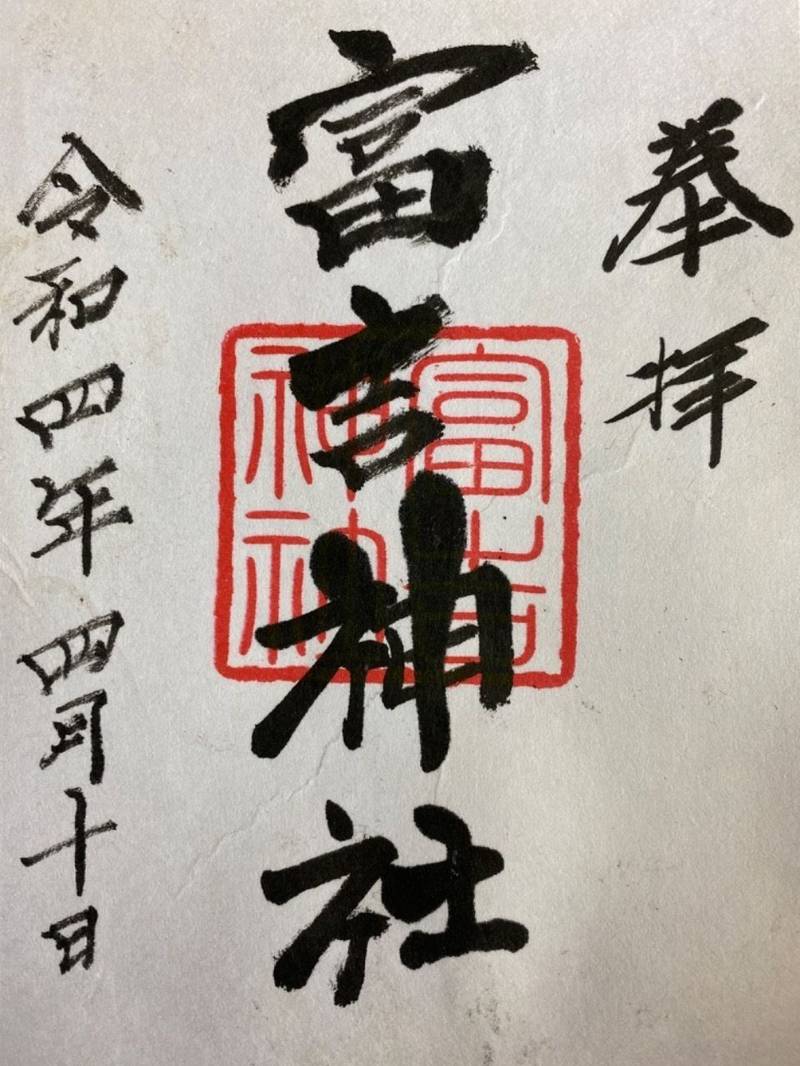 奉拝
富吉神社
富吉神社
令和四年四月十日